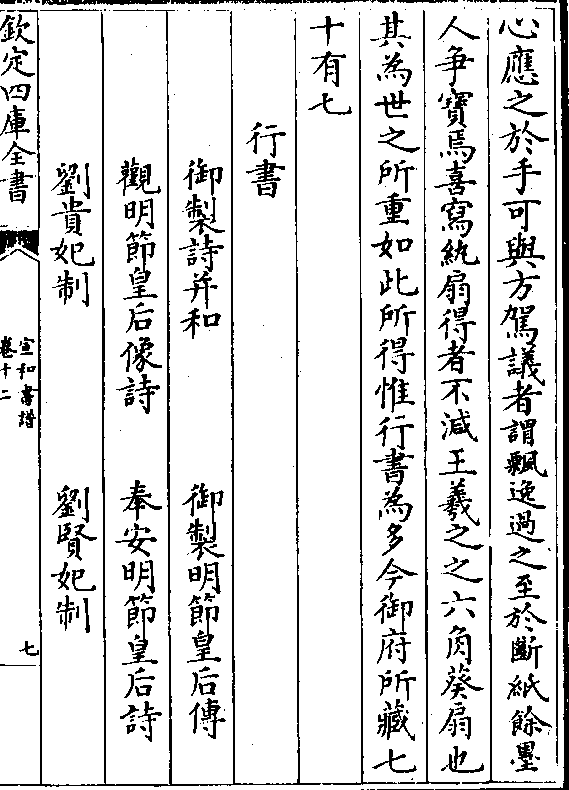 心應之於手可與方駕議者謂飄逸過之至於斷紙餘墨
人爭寶焉喜寫紈扇得者不減王羲之之六角葵扇也
其為世之所重如此所得惟行書為多今御府所藏七
十有七
行書
御製詩并和　御製明節皇后傳
觀明節皇后像詩　奉安明節皇后詩
劉貴妃制　劉賢妃制
欽定四庫全書
宣和書譜
卷十二
七